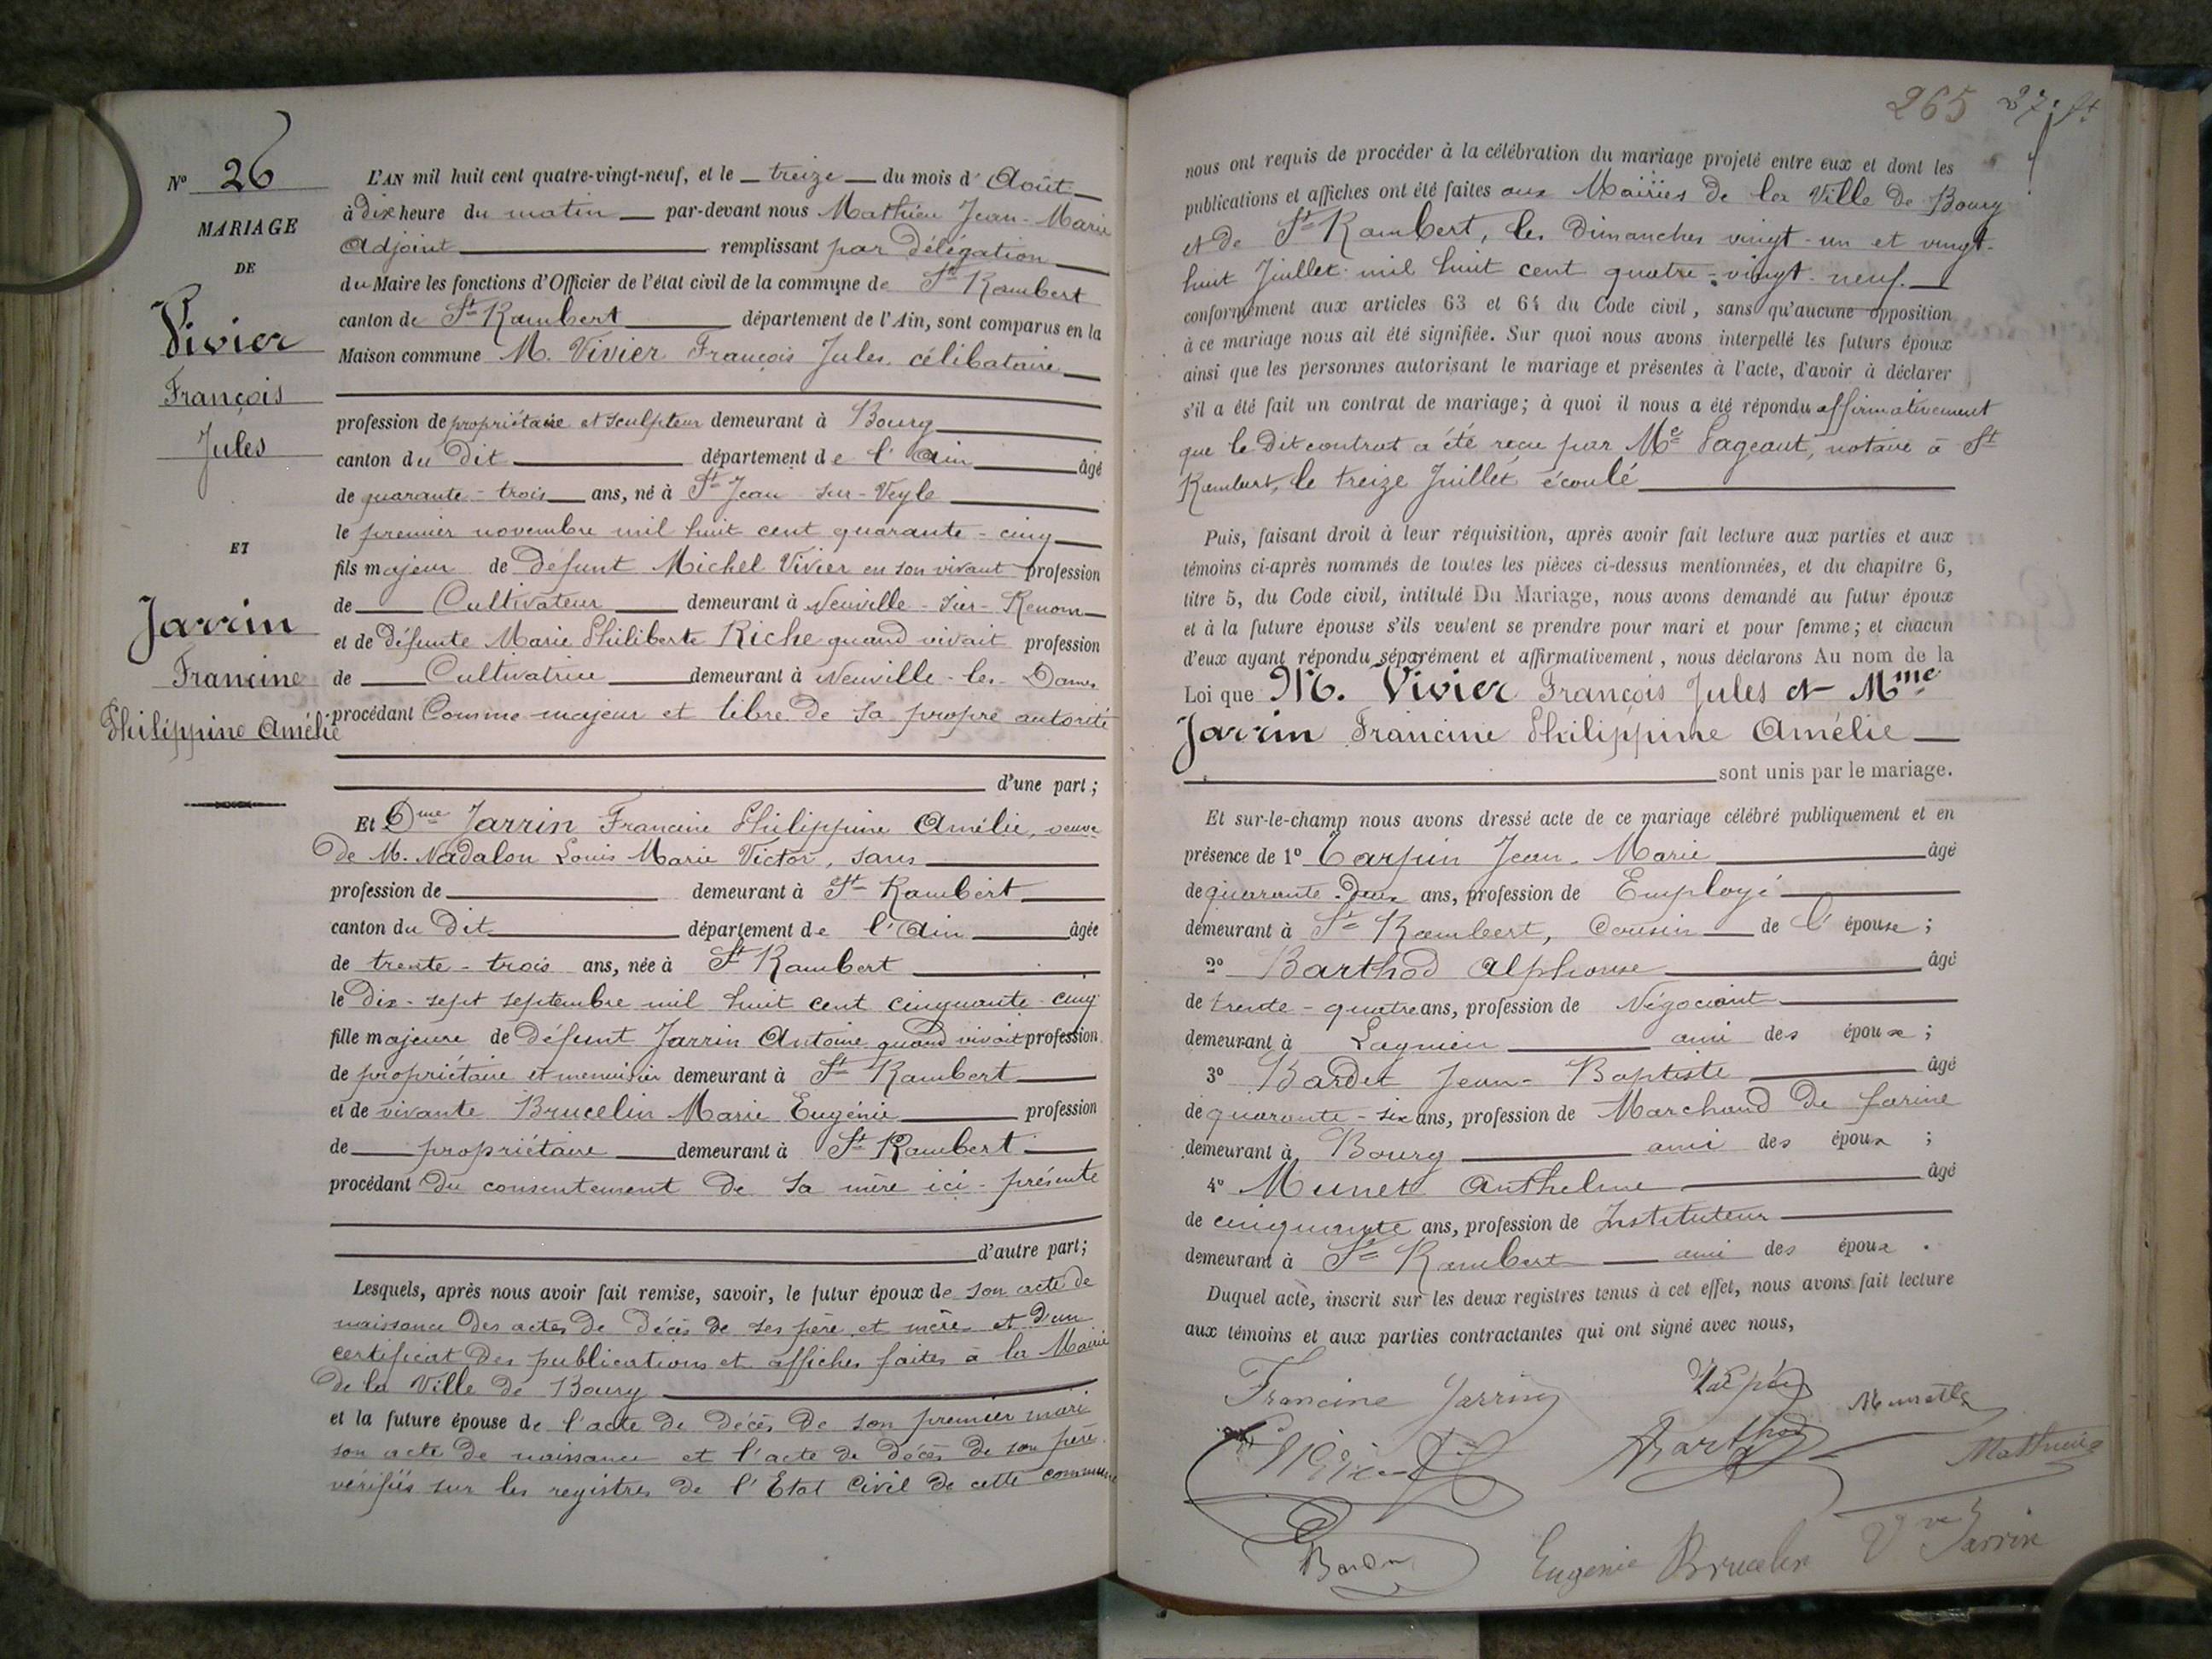 N° 26
MARIAGE
DE
Vivier
François
Jules
ET
Jarrin
Francine
Philippine Amélie
L'AN mil huit cent quatre-vingt-neuf, et le treize du mois d'Août
à dix heure du matin par-devant nous Mathieu Jean-Marie
Adjoint remplissant par délégation
du Maire les fonctions d'Officier de l'état civil de la commune de St Rambert
canton de St Rambert département de l'Ain, sont comparus en la
Maison commune M. Vivier François Jules, célibataire
profession de propriétaire et sculpteur demeurant à Bourg
canton du dit département de l'Ain âgé
de quarante-trois ans, né à St Jean sur-Veyle
le premier novembre mil huit cent quarante-cinq
fils majeur de défunt Michel Vivier en son vivant profession
de Cultivateur demeurant à Neuville-sur-Renom
et de défunte Marie Philiberte Riche quand vivait profession
de Cultivatrice demeurant à Neuville-les-Dames
procédant Comme majeur et libre de sa propre autorité
d'une part;
Et Dme Jarrin Francine Philippine Amélie, veuve
de M. Nadalon Louis Marie Victor, sans
profession de demeurant à St Rambert
canton du Dit département de l'Ain âgée
de trente-trois ans, née à St Rambert
le Dix-sept septembre mil huit cent cinquante-cinq
fille majeure de défunt Jarrin Antoine quand vivait profession
de propriétaire et menuisier demeurant à St Rambert
et de vivante Brucelin Marie Eugénie profession
de propriétaire demeurant à St Rambert
procédant du consentement de sa mère ici-présente
d'autre part;
Lesquels, après nous avoir fait remise, savoir, le futur époux de son acte de
naissance des actes de décès de ses père et mère et d'un
certificat des publications et affiches faites à la Mairie
de la Ville de Bourg
et la future épouse de l'acte de décès de son premier mari
son acte de naissance et l'acte de décès de son père
vérifiés sur les registres de l'Etat Civil de cette commune
265 27e ft
nous ont requis de procéder à la célébration du mariage projeté entre eux et dont les
publications et affiches ont été faites aux Mairies de la Ville de Bourg
et de St Rambert, les dimanches vingt-un et vingt-
huit Juillet mil huit cent quatre-vingt-neuf.
conformément aux articles 63 et 64 du Code civil, sans qu'aucune opposition
à ce mariage nous ait été signifiée. Sur quoi nous avons interpellé les futurs époux
ainsi que les personnes autorisant le mariage et présentes à l'acte, d'avoir à déclarer
s'il a été fait un contrat de mariage; à quoi il nous a été répondu affirmativement
que le dit contrat a été reçu par Me Pageaut, notaire à St
Rambert, le treize Juillet écoulé
Puis, faisant droit à leur réquisition, après avoir fait lecture aux parties et aux
témoins ci-après nommés de toutes les pièces ci-dessus mentionnées, et du chapitre 6,
titre 5, du Code civil, intitulé Du Mariage, nous avons demandé au futur époux
et à la future épouse s'ils veulent se prendre pour mari et pour femme; et chacun
d'eux ayant répondu séparément et affirmativement, nous déclarons Au nom de la
Loi que M. Vivier François Jules et Mme
Jarrin Francine Philippine Amélie
sont unis par le mariage.
Et sur-le-champ nous avons dressé acte de ce mariage célébré publiquement et en
présence de 1° Tarpin Jean-Marie âgé
de quarante-deux ans, profession de Employé
demeurant à St Rambert, Cousin de l'épouse;
2° Barthod Alphonse âgé
de trente-quatre ans, profession de Négociant
demeurant à Lagnieu ami des époux;
3° Bardet Jean-Baptiste âgé
de quarante-six ans, profession de Marchand de farine
demeurant à Bourg ami des époux;
4° Munet Anthelme âgé
de cinquante ans, profession de Instituteur
demeurant à St Rambert ami des époux.
Duquel acte, inscrit sur les deux registres tenus à cet effet, nous avons fait lecture
aux témoins et aux parties contractantes qui ont signé avec nous,
Francine Jarrin
Barthod
Mathieu
Eugénie Brucelin Vve Jarrin